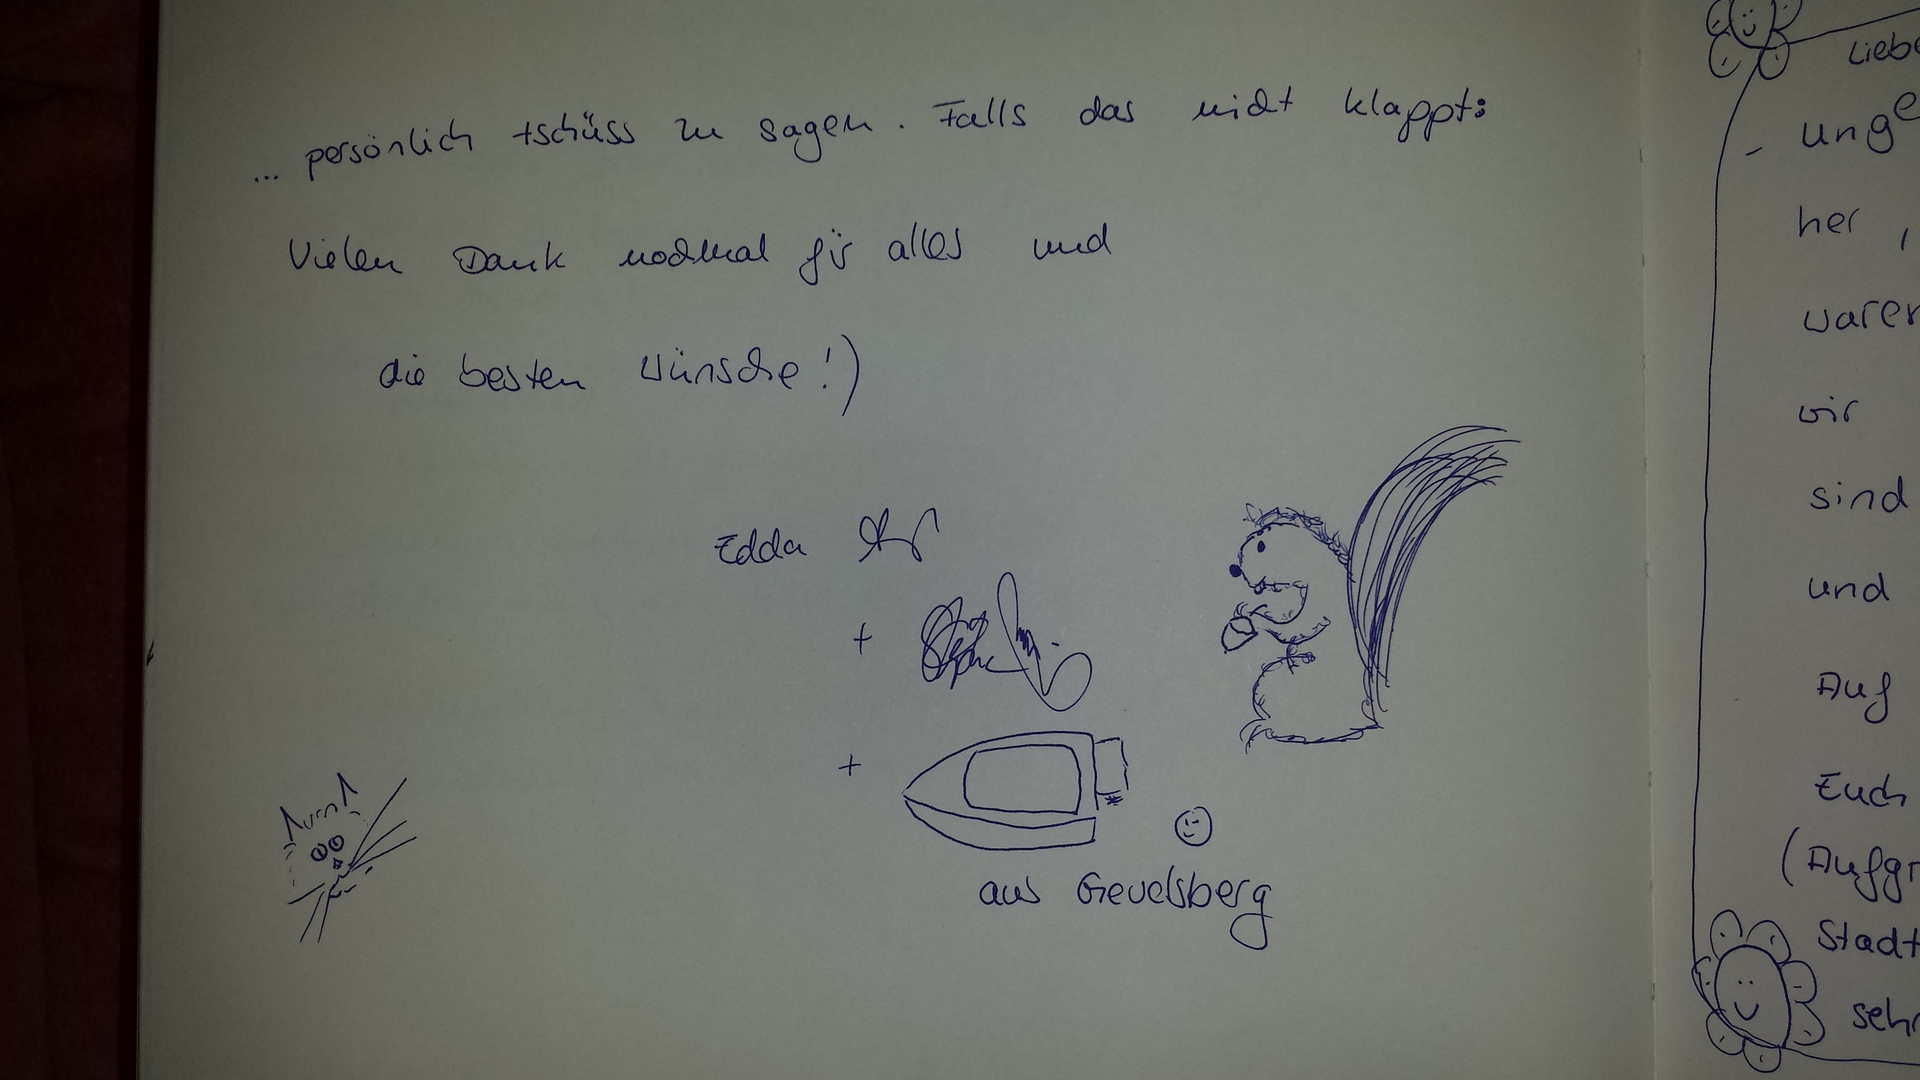 ... persönlich tschüss zu sagen. Falls das nicht klappt:
Vielen Dank nochmal für alles und
die besten Wünsche!)
Edda
+
+
aus Gevelsberg
Liebe
unge
her,
waren
wir
sind
und
Auf
Euch
(Aufgr
Stadt
sehr